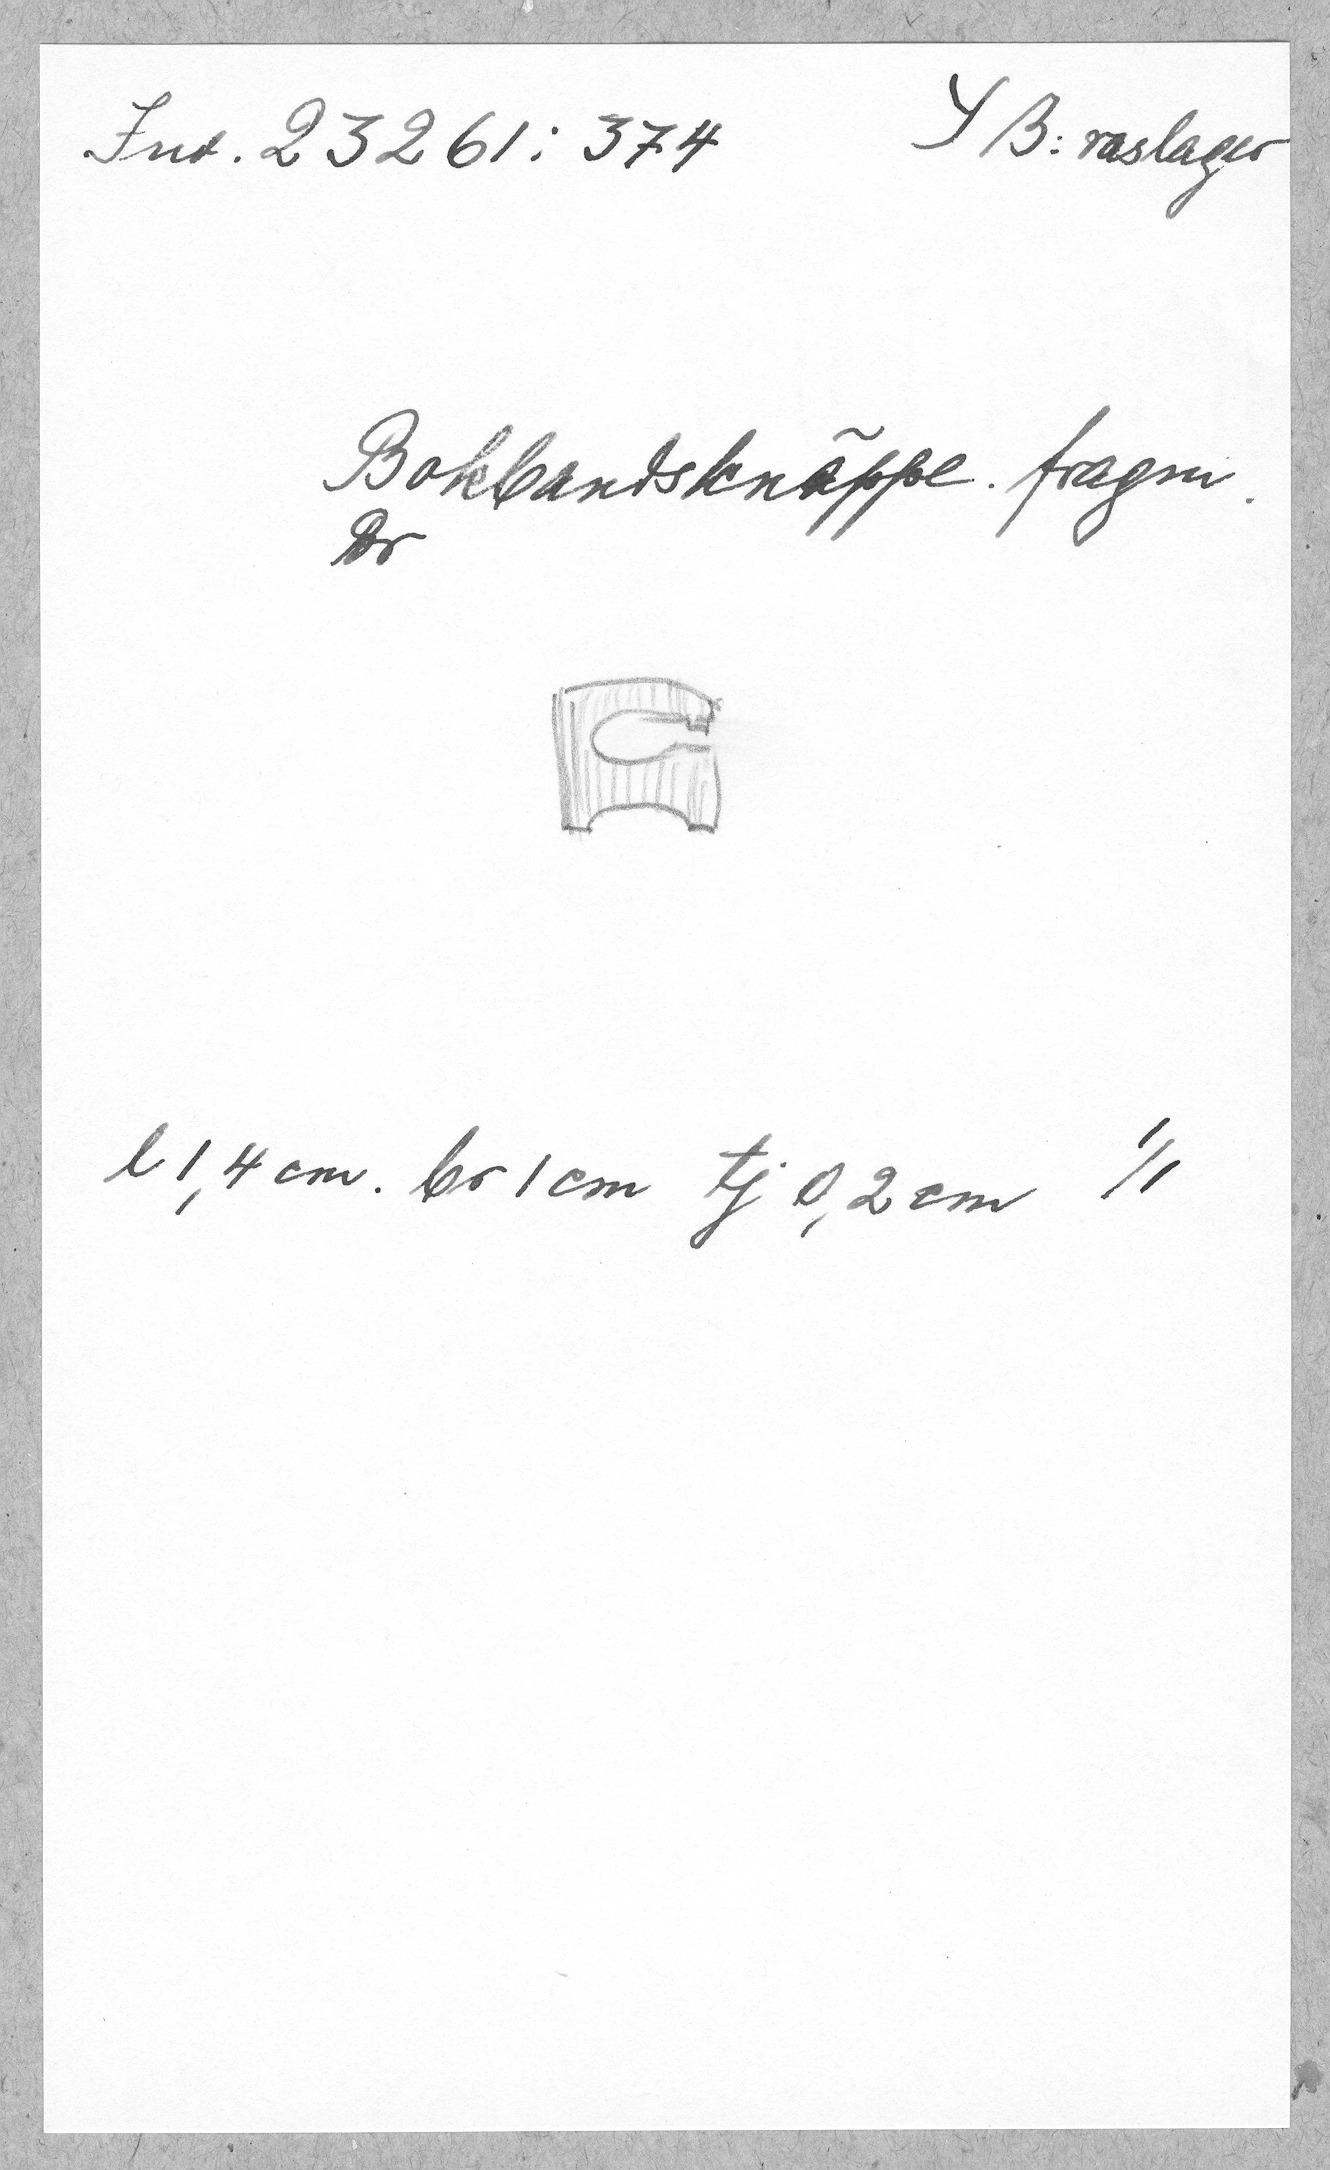 Inv. 23261: 374
Y B: raslager
Bokbandsknäppe. fragm.
Br
l 1,4 cm. br 1 cm tj 0,2 cm 1/1